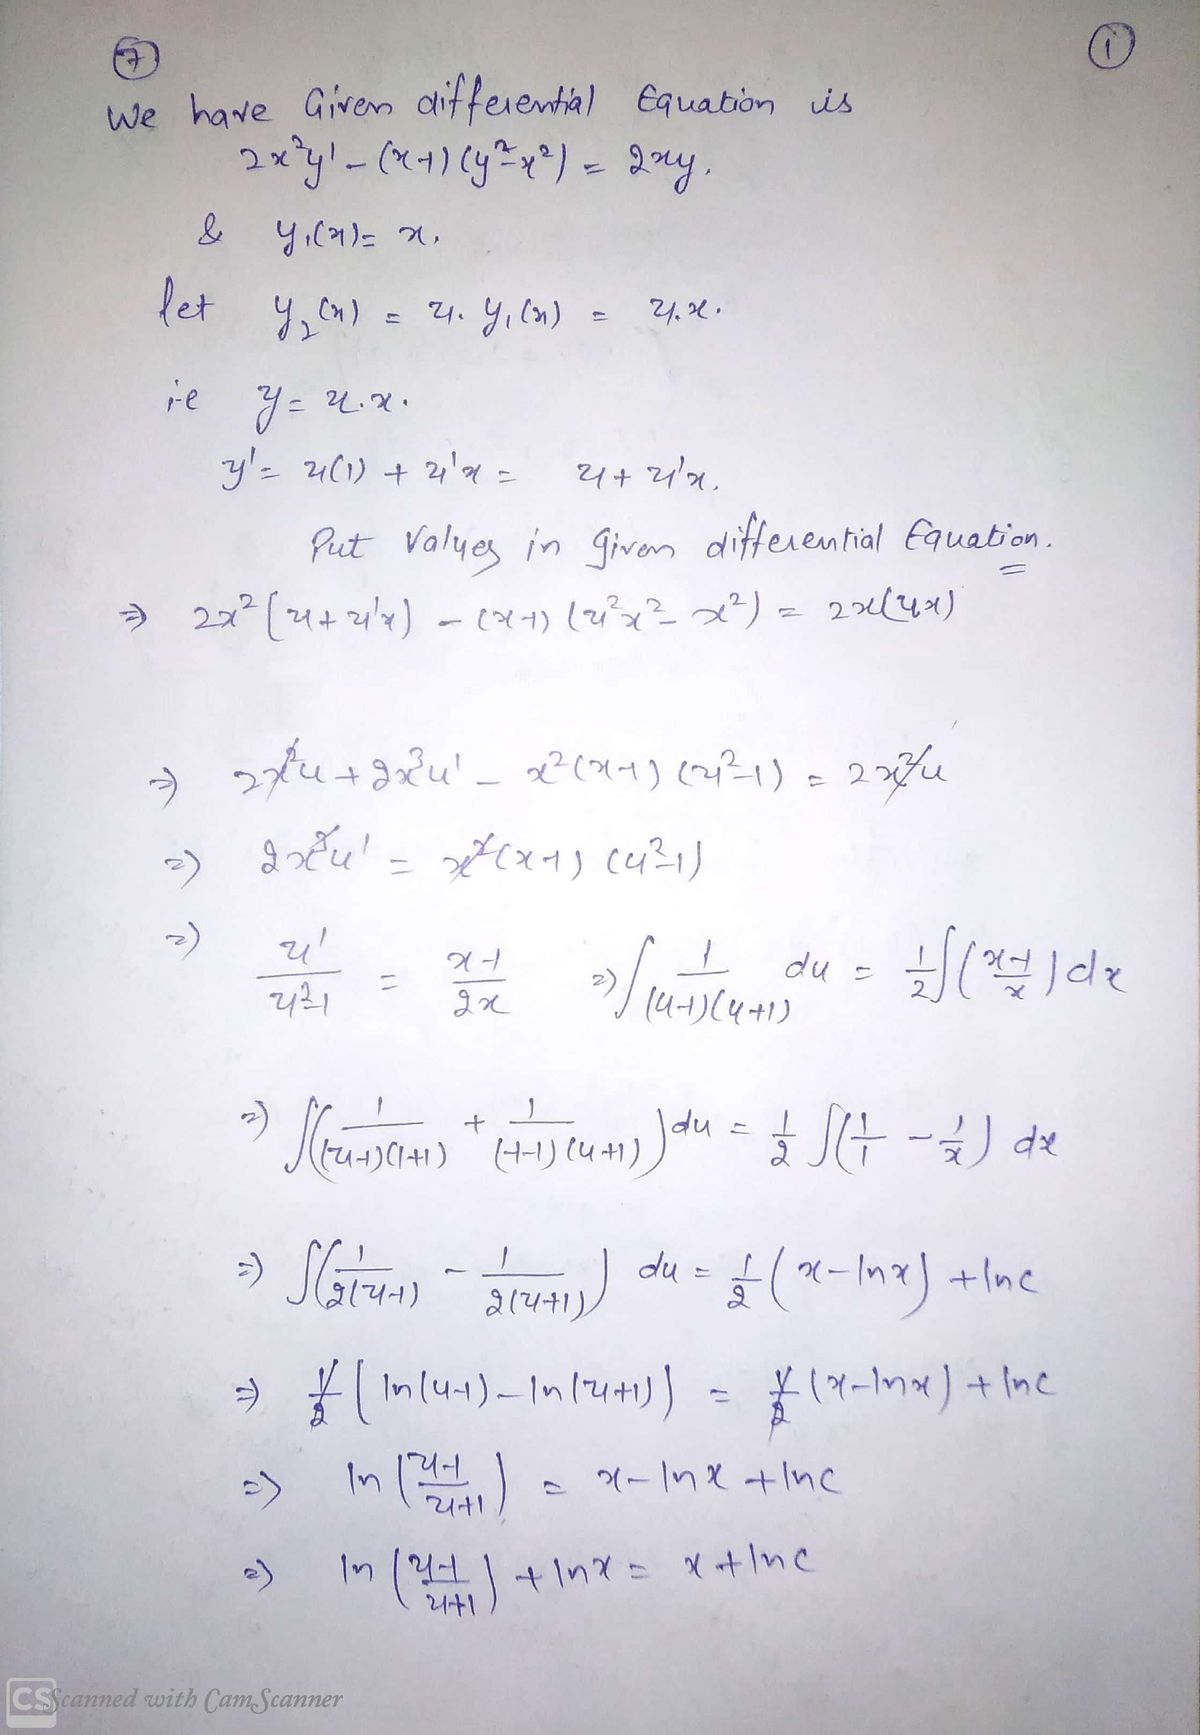 7
1
We have Given differential Equation is
2x²y' - (x-1)(y²-x²) = 2xy.
& y₁(x) = x.
let y₂(x) = u. y₁(x) = u.x.
i.e y = u.x.
y' = u(1) + u'x = u + u'x.
Put Values in given differential Equation.
⇒ 2x²(u + u'x) - (x-1)(u²x² - x²) = 2x(ux)
⇒ 2x²u + 2x³u' - x²(x-1)(u²-1) = 2x²u
⇒ 2x³u' = x²(x-1)(u²-1)
⇒ u'/(u²-1) = (x-1)/2x ⇒ ∫ 1/((u-1)(u+1)) du = 1/2 ∫((x-1)/x) dx
⇒ ∫(1/((u-1)(1+1)) + 1/((-1-1)(u+1))) du = 1/2 ∫(1/1 - 1/x) dx
⇒ ∫(1/(2(u-1)) - 1/(2(u+1))) du = 1/2 (x - ln x) + ln c
⇒ 1/2 (ln(u-1) - ln(u+1)) = 1/2 (x - ln x) + ln c
⇒ ln((u-1)/(u+1)) = x - ln x + ln c
⇒ ln((u-1)/(u+1)) + ln x = x + ln c
CS Scanned with CamScanner